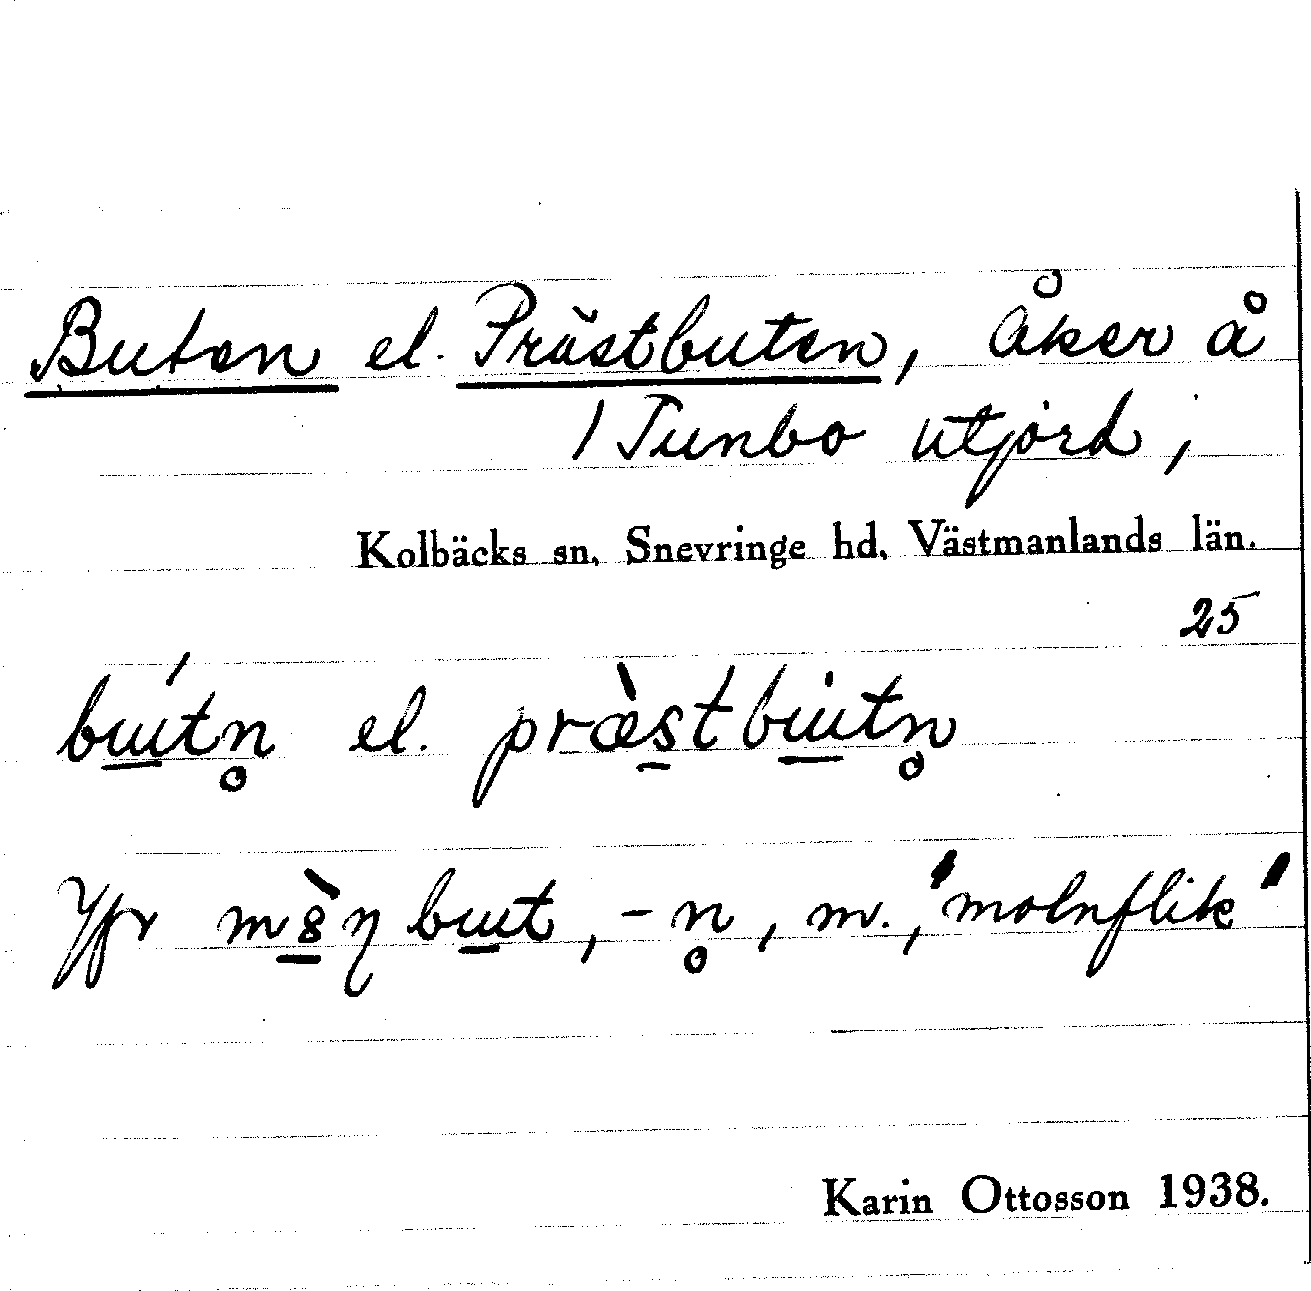 Buten el. Prästbuten, åker å
1 Tunbo utjord,
Kolbäcks sn, Snevringe hd, Västmanlands län.
25
bu̲´tn̥ el. præ̀s̲tbu̲tn̥
Jfr bu̲t, -n̥, m., "molnflik"
Karin Ottosson 1938.